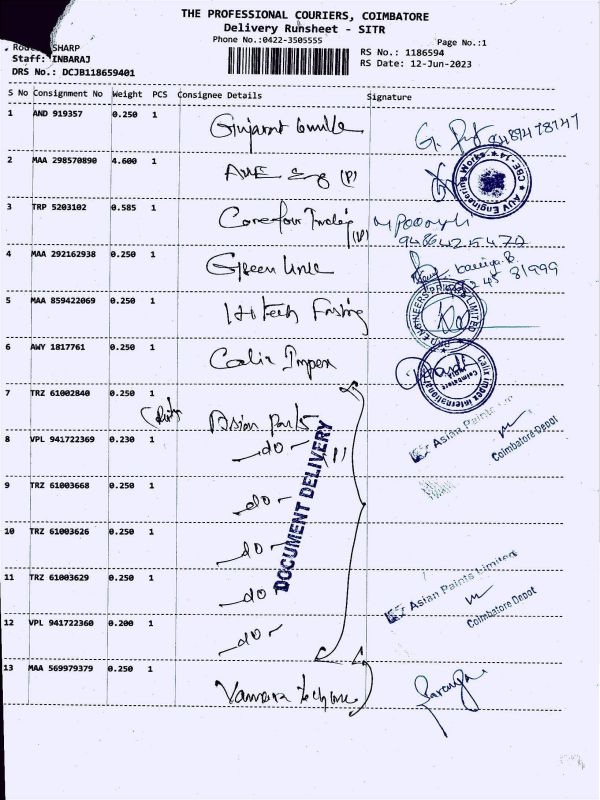 THE PROFESSIONAL COURIERS, COIMBATORE
Delivery Runsheet - SITR
Phone No.:0422-3505555
Page No.:1
SHARP
Staff: INBARAJ
DRS No.: DCJB118659401
RS No.: 1186594
RS Date: 12-Jun-2023
S No Consignment No Weight PCS Consignee Details Signature
1 AND 919357 0.250 1 Gujarat
2 MAA 298570890 4.600 1 (P)
AUV Engineering Works CBE-14
3 TRP 5203102 0.585 1
9486425472
4 MAA 292162938 0.250 1 Green Line
5 MAA 859422069 0.250 1 Hi Tech
ENGINEERS PRIVATE LIMITED
6 AWY 1817761 0.250 1 Calix Impex
Calix Impex International
Coimbatore
7 TRZ 61002840 0.250 1 Asian Paints
Asian Paints
Coimbatore Depot
8 VPL 941722369 0.230 1 -do-
9 TRZ 61003668 0.250 1 -do-
10 TRZ 61003626 0.250 1 -do-
11 TRZ 61003629 0.250 1 -do-
DOCUMENT DELIVERY
Asian Paints Limited
Coimbatore Depot
12 VPL 941722360 0.200 1 -do-
13 MAA 569979379 0.250 1